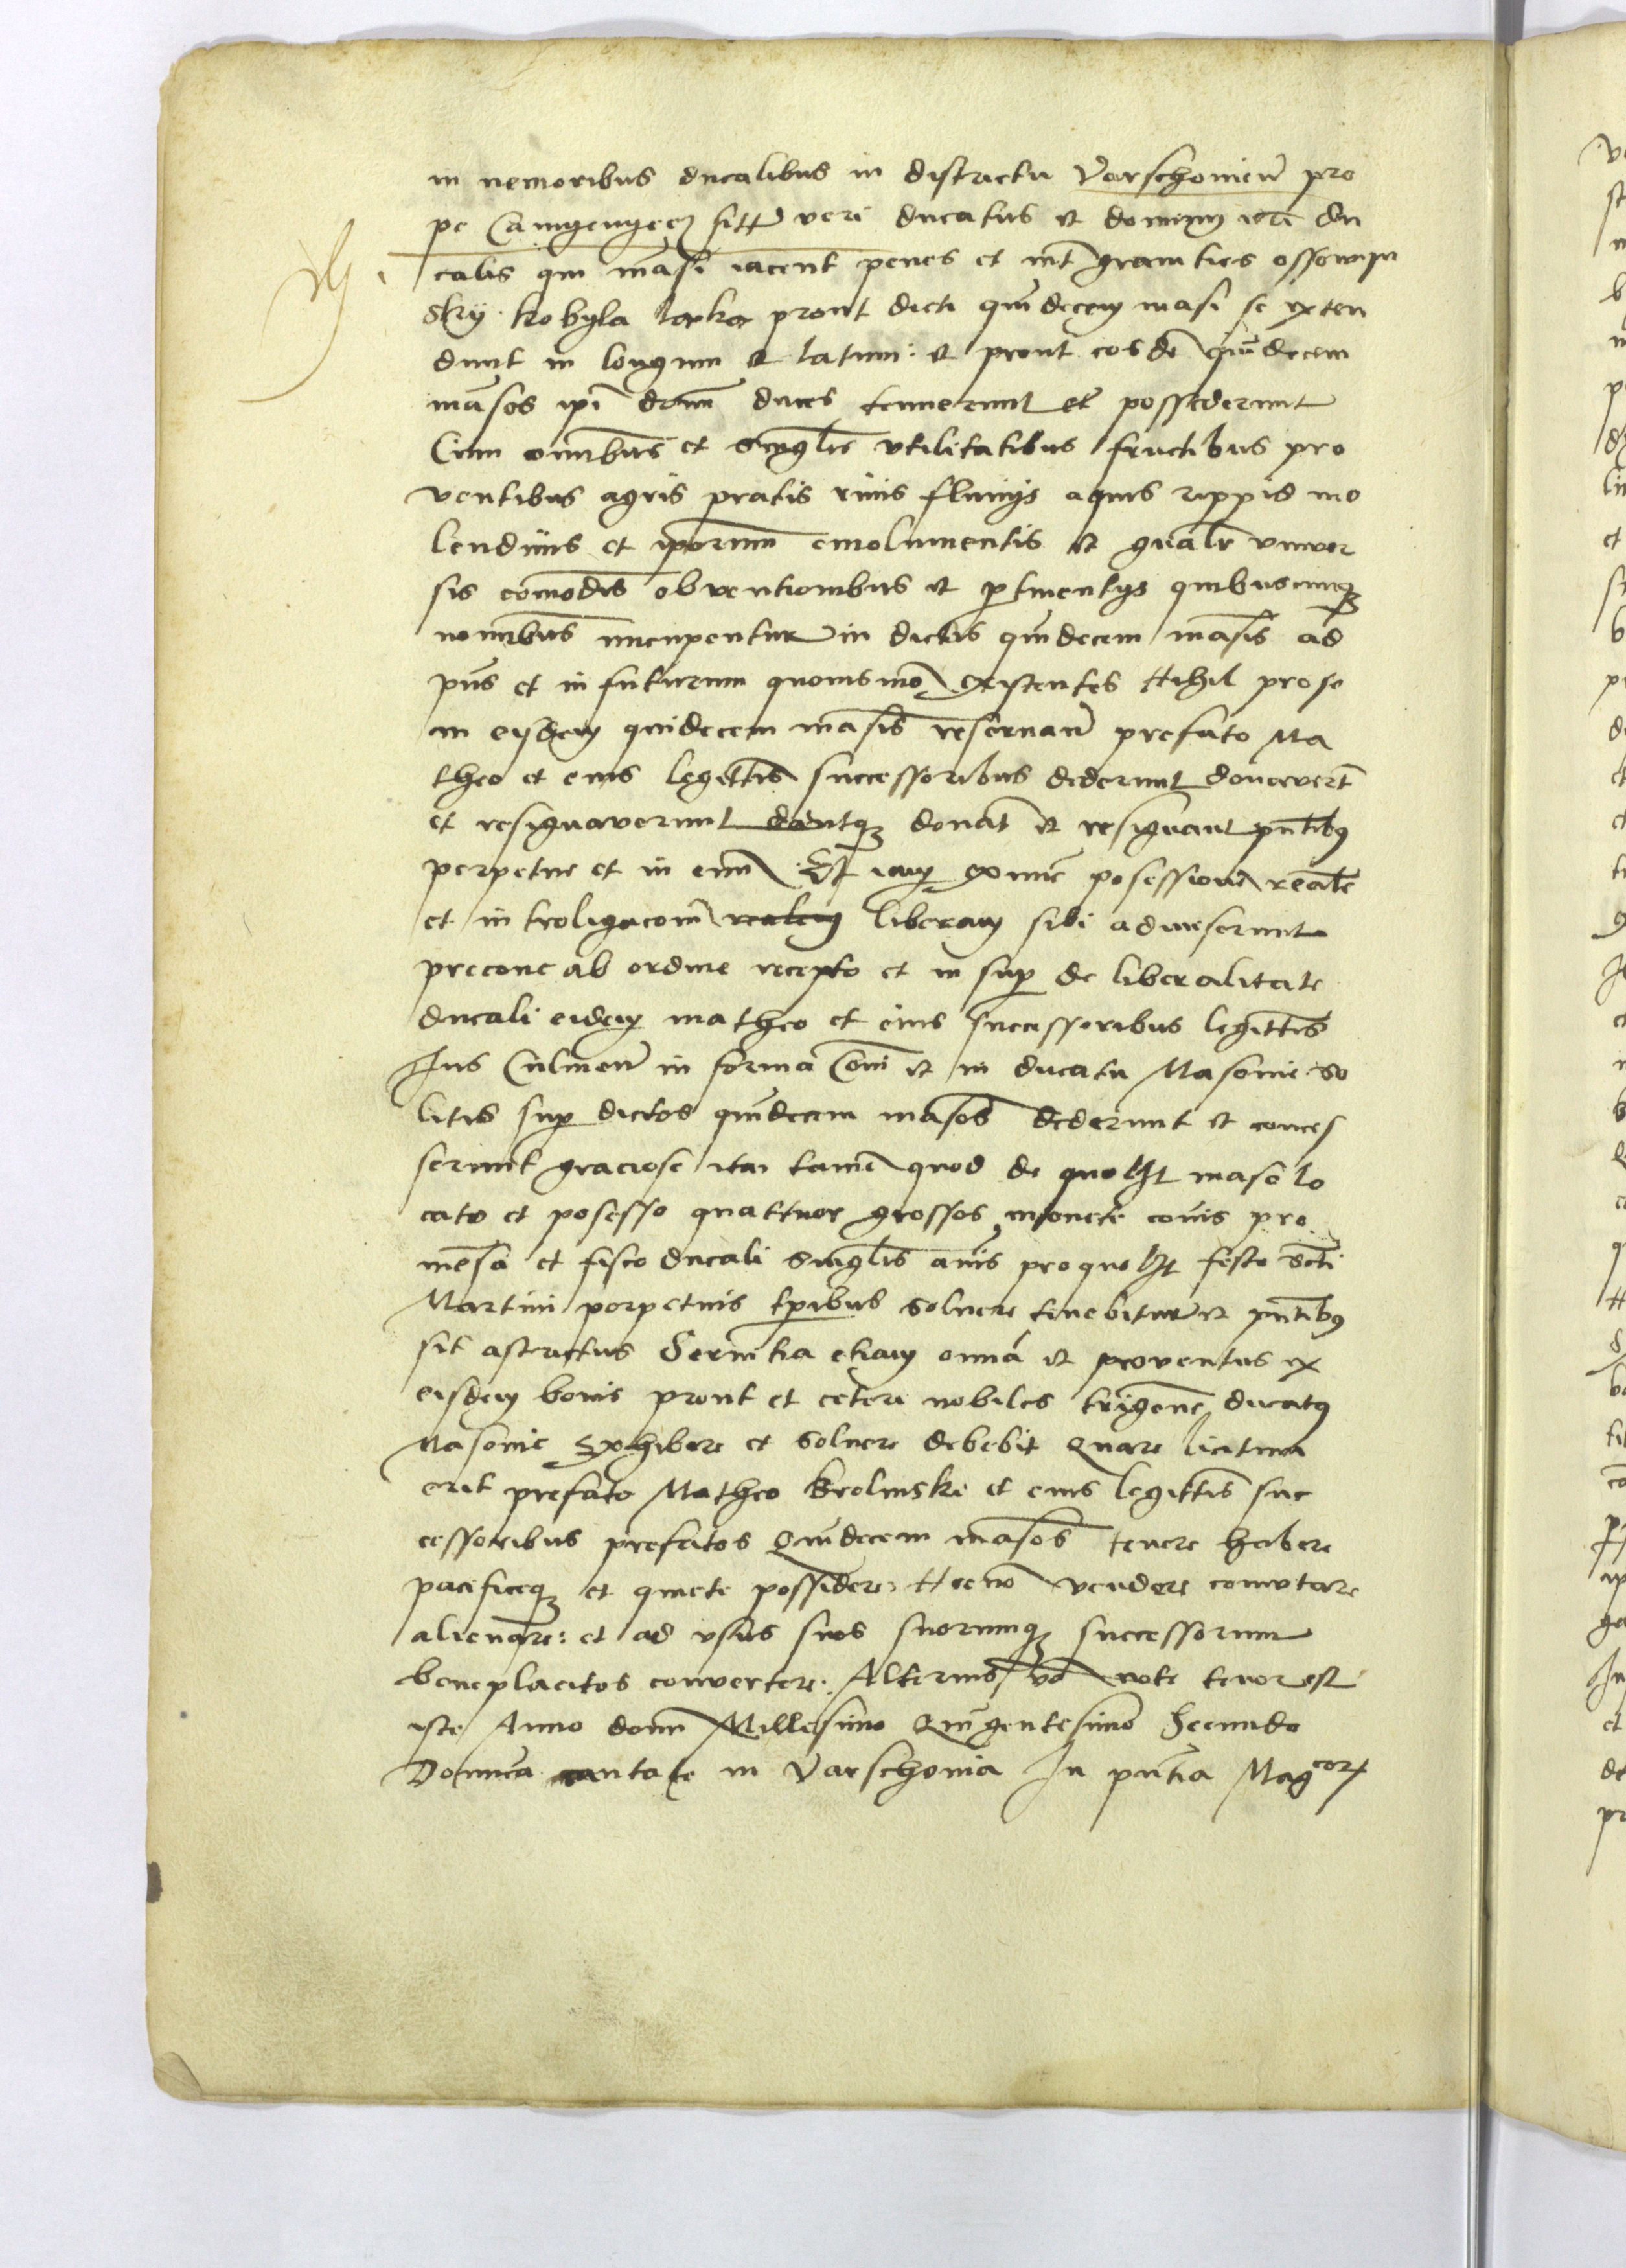 in nemoribus ducalibus in districtu Varschouien pro
pe Camyenyecz sitt veri ducatus et dominij ipi du
calis qui masi iacent penes et int granities ossowyn
sky kobyla lanka prout dicti quidecem masi se exten
dunt in longum et latum: et prout eosde quidecem
masos ipi dnm duces tenuerunt et possederunt
Cum omnibus et singlis vtilitatibus fructibus pro
ventibus agris pratis riuis fluuijs aquis rippis mo
lendinis et iporum emolumentis et gnalr vniver
sis comodis obventionibus et ptinentijs quibuscunq
nominibus nuncupentur in dictis quidecem masis ad
pns et in futurum quouismo existentes Nihil pro se
in eysdem quidecem masis reseruan prefato Ma
theo et eius legittis successoribus dederunt donavert
et resignaverunt dantq donat et resignant pntibus
perpetue et in eum Et iam exnunc posessione reale
et introligacom realem liberam sibi admiserunt
precone ab ordine recepto et in sup de liberalitate
ducali eidem matheo et eius successoribus legittis
Jus Culmen in forma Coni et in ducatu Masouie so
litis sup dictos quidecem masos dederunt et conces
serunt graciose ita tame quod de quolt maso lo
cato et posesso quattuor grossos monete cois pro
mesa et fisco ducali singlis anis pro quolt festo scti
Martini perpetuis tpibus soluere tenebitur et pntibus
sit astrictus Seruitia etiam omia et proventus ex
eisdem bonis prout et ceteri nobiles trigene ducatus
Masouie Exhibere et soluere debebit Quare licitum
erit prefato Matheo Krolinski et eius legittis suc
cessoribus prefatos Quidecem masos tenere habere
pacificeq et quiete possidere: Necno vendere comutare
alienare: et ad vsus suos suorumq successorum
beneplacitos convertere: Alterius vo note tenor est
iste Anno domi Millesimo Quigentesimo Secundo
Domica cantate in Varschouia In pntia Magcorum